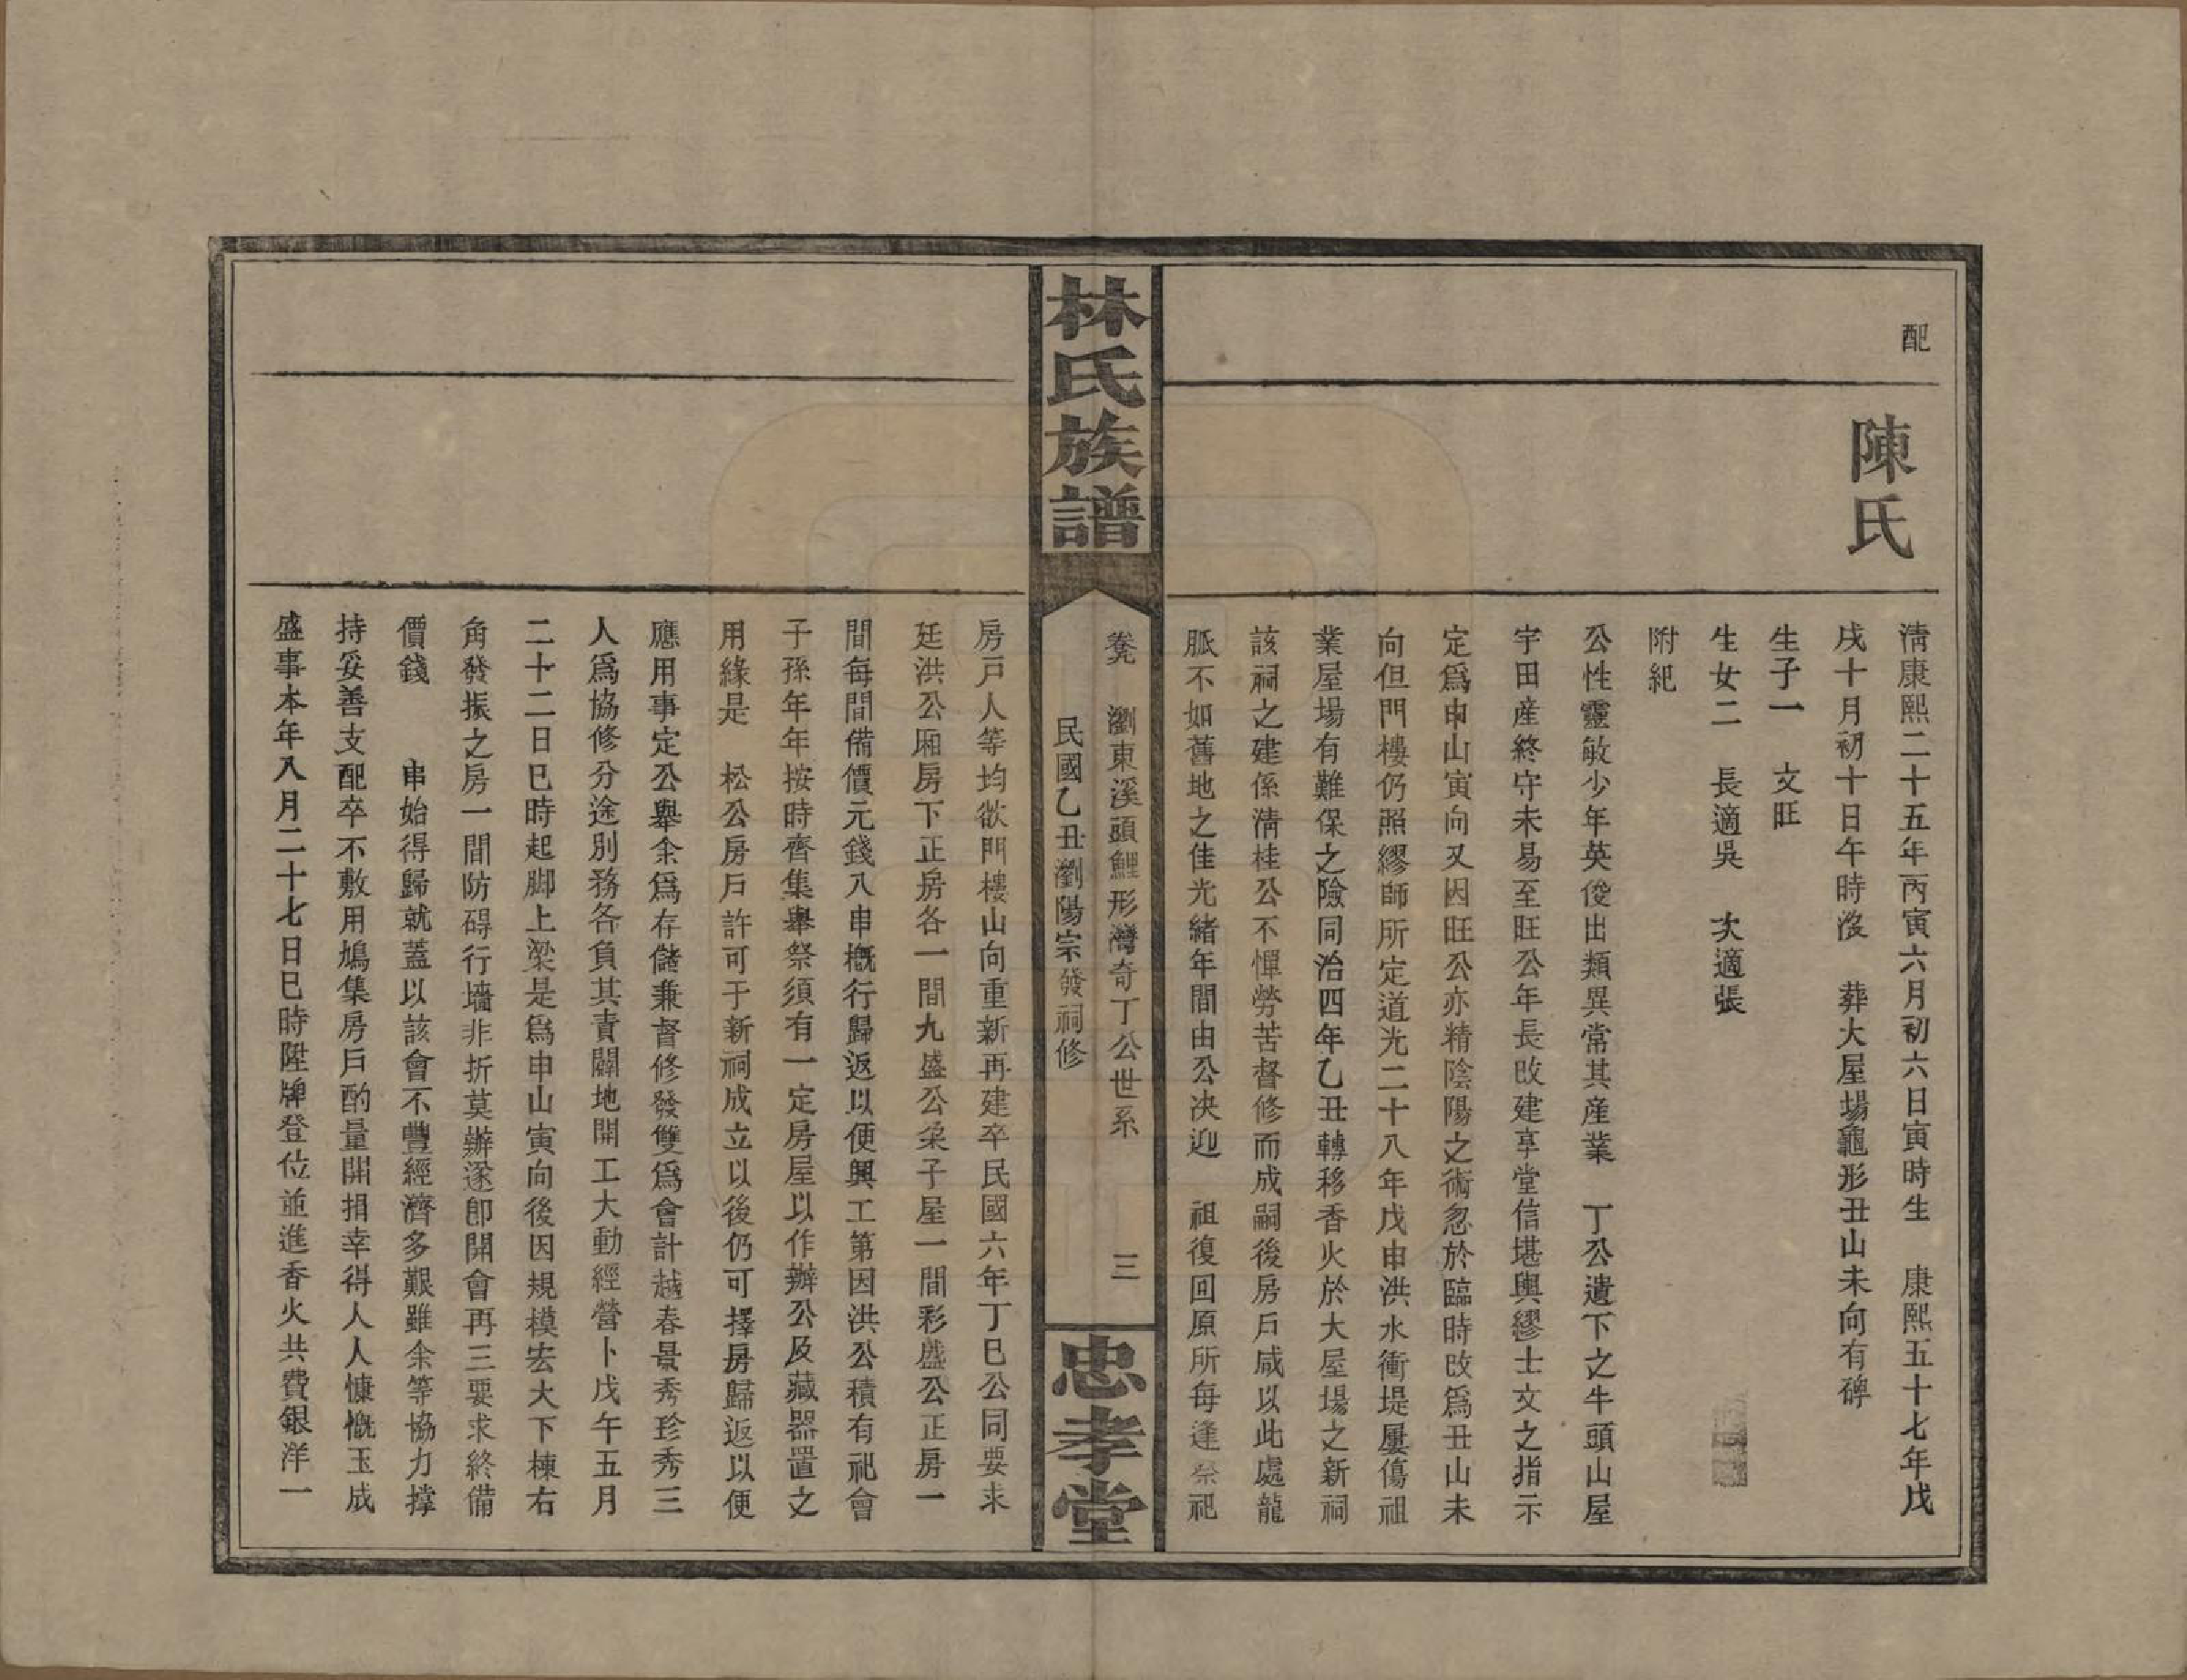 配
陳氏
清康熙二十五年丙寅六月初六日寅時生　康熙五十七年戊
戌十月初十日午時歿　葬大屋場龜形丑山未向有碑
生子一　文旺
生女二　長適吳　次適張
附紀
公性靈敏少年英俊出類異常其産業　丁公遺下之牛頭山屋
宇田産終守未易至旺公年長改建享堂信堪輿繆士文之指示
定爲申山寅向又因旺公亦精陰陽之術忽於臨時改爲丑山未
向但門樓仍照繆師所定道光二十八年戊申洪水衝堤屢傷祖
業屋場有難保之險同治四年乙丑轉移香火於大屋場之新祠
該祠之建係淸桂公不憚勞苦督修而成嗣後房戶咸以此處龍
脈不如舊地之佳光緒年間由公決迎　祖復回原所每逢祭祀
林氏族譜
卷　瀏東溪頭鯉形灣奇丁公世系　三
民國乙丑瀏陽宗發祠修
忠孝堂
房戶人等均欲門樓山向重新再建卒民國六年丁巳公同要求
廷洪公厢房下正房各一間九盛公朵子屋一間彩盛公正房一
間每間備價元錢八串概行歸返以便興工第因洪公積有祀會
子孫年年按時齊集舉祭須有一定房屋以作辦公及藏器置之
用緣是　松公房戶許可于新祠成立以後仍可擇房歸返以便
應用事定公舉余爲存儲兼督修發雙爲會計越春景秀珍秀三
人爲協修分途別務各負其責闢地開工大動經營卜戊午五月
二十二日巳時起脚上梁是爲申山寅向後因規模宏大下棟右
角發振之房一間防碍行墻非折莫辦遂即開會再三要求終備
價錢　　串始得歸就蓋以該會不豐經濟多艱雖余等協力撑
持妥善支配卒不敷用鳩集房戶酌量開捐幸得人人慷慨玉成
盛事本年八月二十七日巳時陞牌登位並進香火共費銀洋一